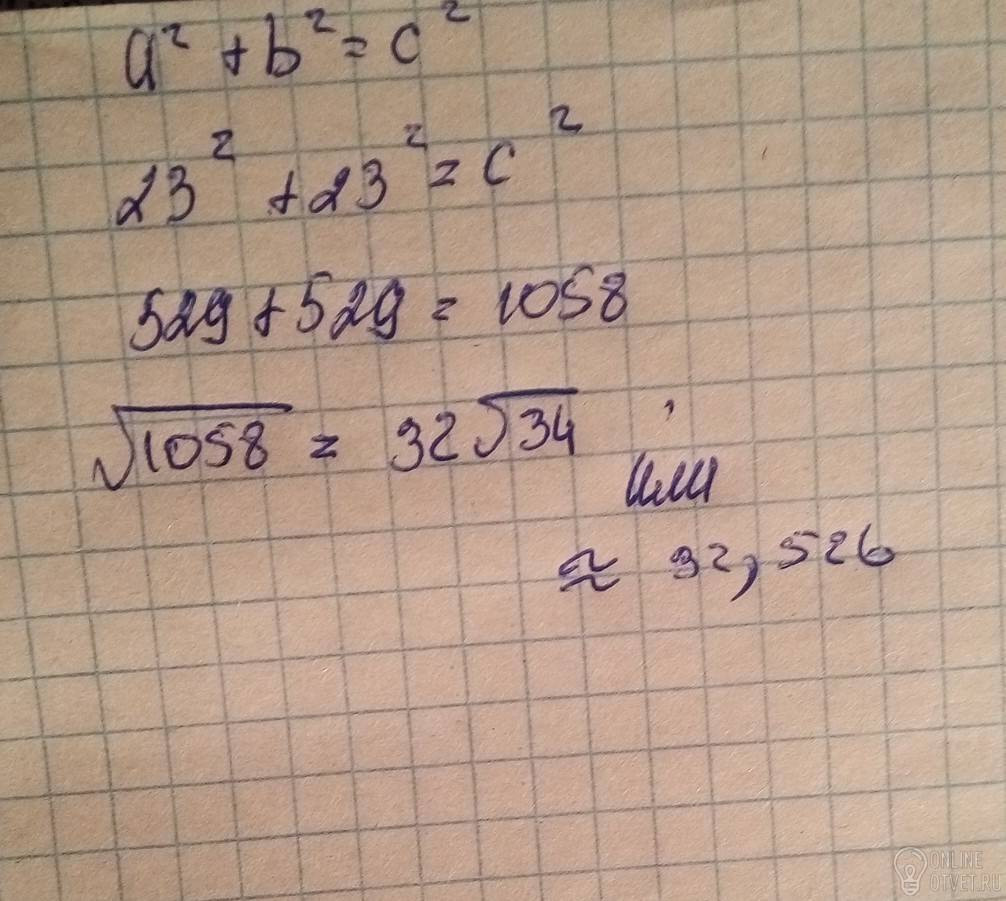 a² + b² = c²
23² + 23² = c²
529 + 529 = 1058
√1058 = 32√34
или
≈ 32,526
ONLINE
OTVET.RU